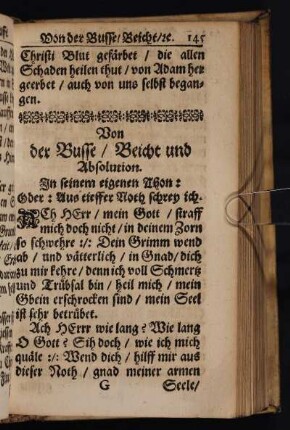 Von der Busse/ Beicht/ ꝛc. 145
Christi Blut gefärbet / die allen
Schaden heilen thut / von Adam her
geerbet / auch von uns selbst began-
gen.
Von
der Busse / Beicht und
Absolution.
In seinem eigenen Thon:
Oder: Aus tieffer Noth schrey ich.
ACh HErr / mein Gott / straff
mich doch nicht / in deinem Zorn
so schwehre :/: Dein Grimm wend
ab / und vätterlich / in Gnad/ dich
zu mir kehre / denn ich voll Schmertz
und Trübsal bin / heil mich / mein
Gbein erschrocken sind / mein Seel
ist sehr betrübet.
Ach HErrr wie lang? Wie lang
O Gott? Sih doch / wie ich mich
quäle :/: Wend dich / hilff mir aus
dieser Noth / gnad meiner armen
G Seele/